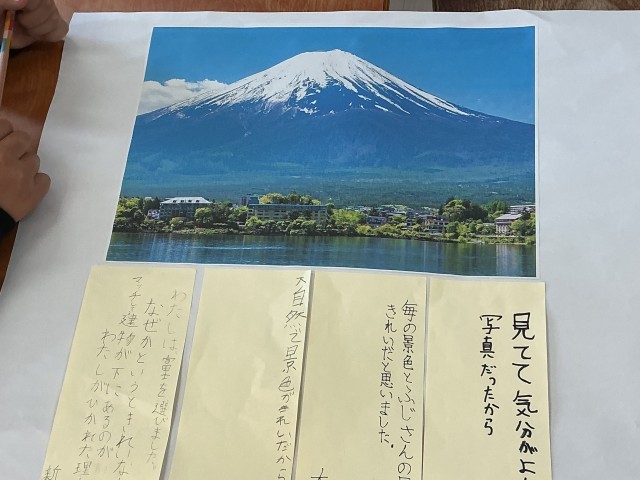 見てて気分がよ
写真だったから
毎の景色とふじさんの
きれいだと思いました。
大自然で景色がきれいだから
わたしは を選びました。
なぜかというときれいな
建物が下にあるのが
わたしがひかれた理